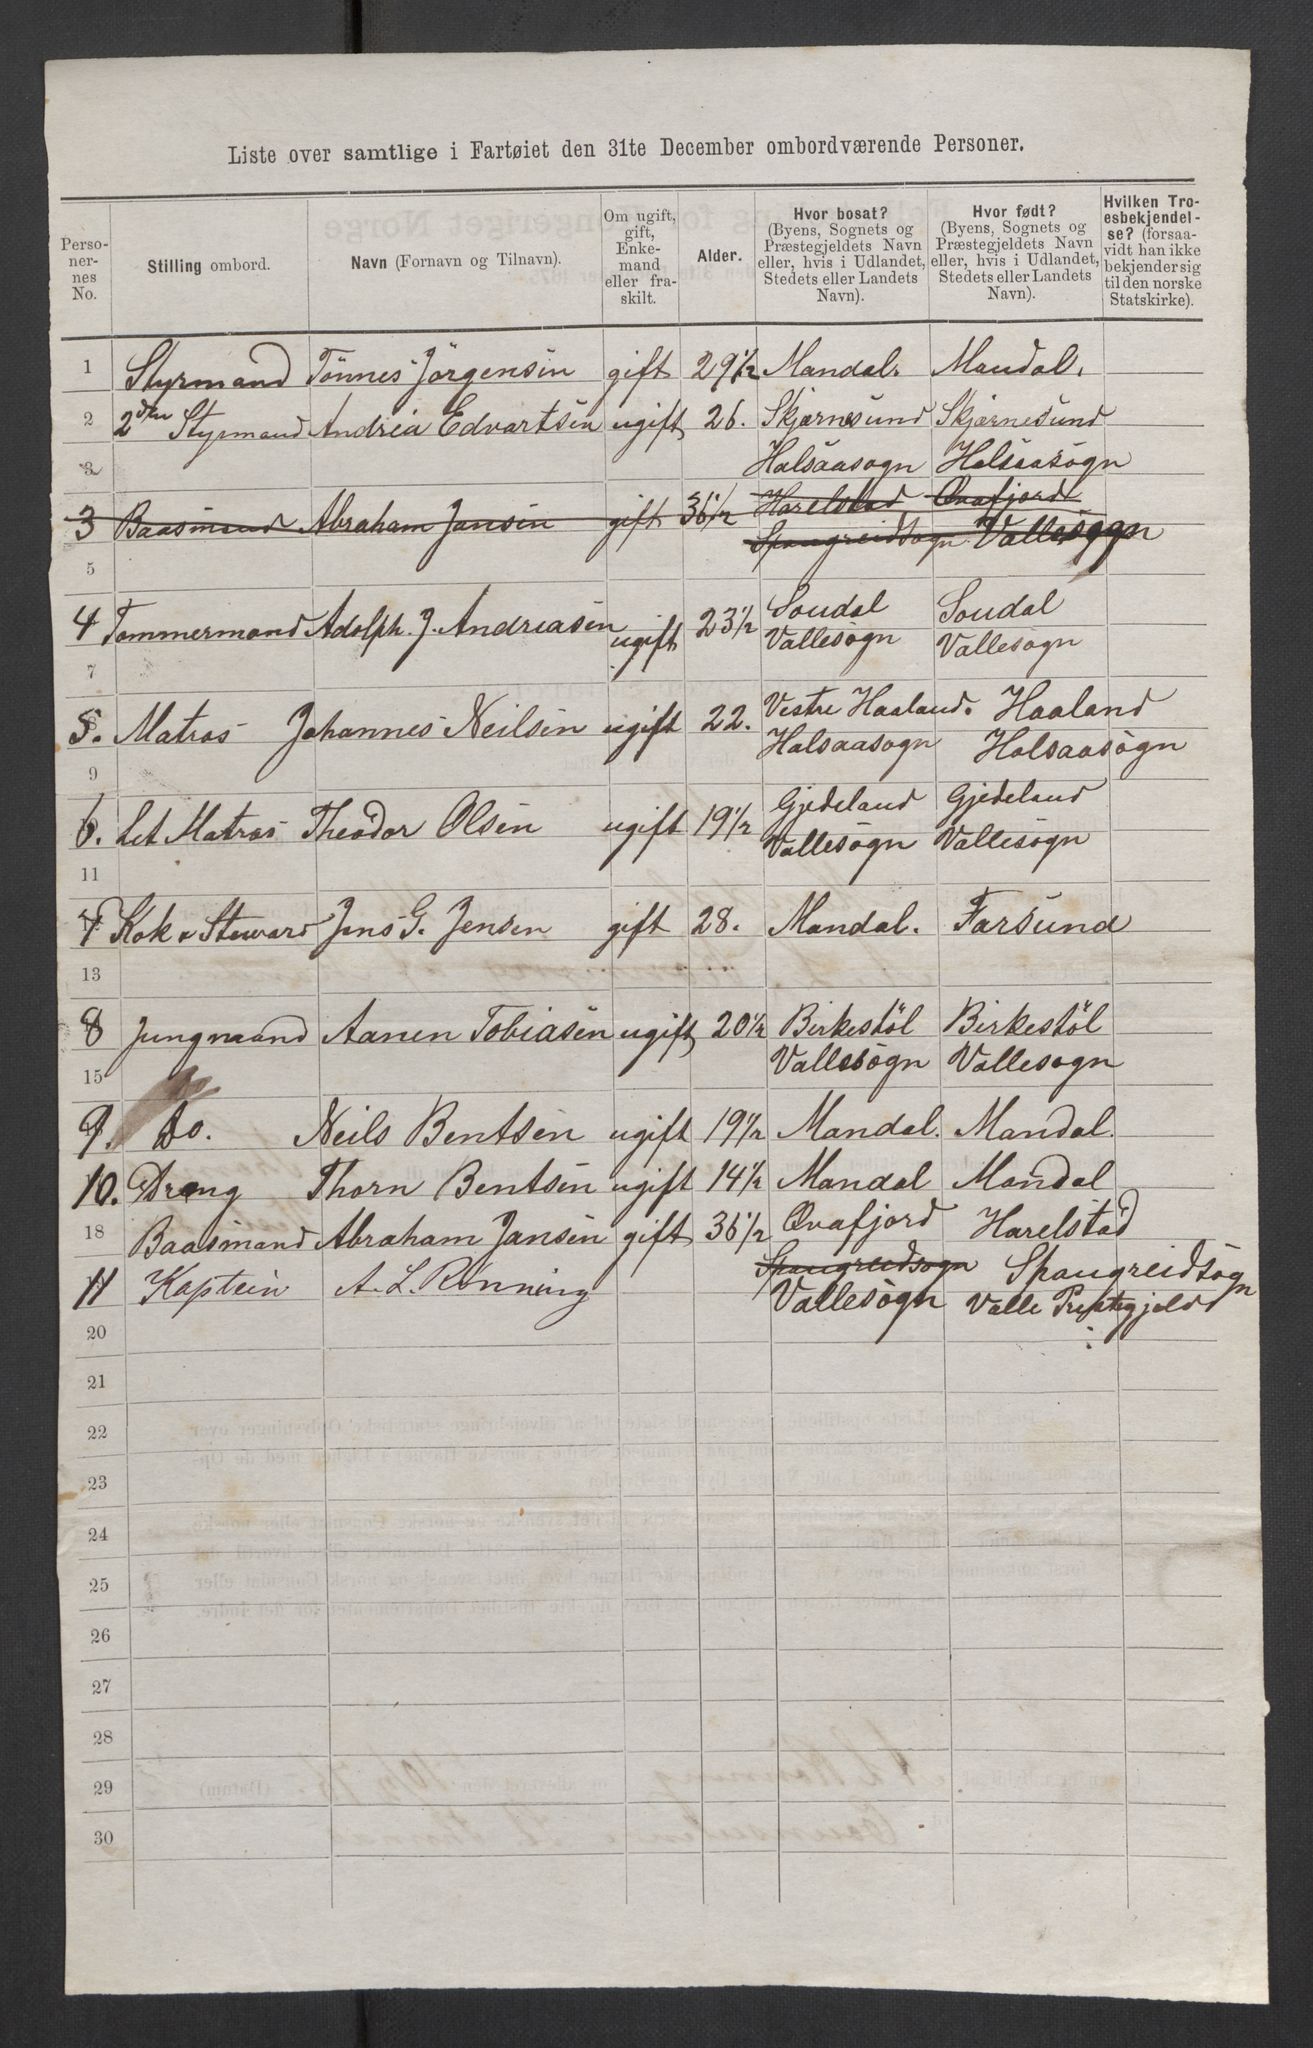 Liste over samtlige i Fartøiet den 31te December ombordværende Personer.
Perso-
ner-
nes
No.
Stilling ombord.
Navn (Fornavn og Tilnavn).
Om ugift,
gift,
Enke-
mand
eller fra-
skilt.
Alder.
Hvor bosat?
(Byens, Sognets og
Præstegjeldets Navn
eller, hvis i Udlandet,
Stedets eller Landets
Navn).
Hvor født?
(Byens, Sognets og
Præstegjeldets Navn
eller, hvis i Udlandet,
Stedets eller Landets
Navn).
Hvilken Tro-
esbekjendel-
se? (forsaa-
vidt han ikke
bekjender sig
til den norske
Statskirke).
1 Styrmand Tönnes Jörgensin gift 29½ Mandal. Mandal.
2 2den Styrmand Andria Edvartsin ugift 26. Skjærnesund Skjærnesund
3 Halsaasogn Halsaasogn
3 Baasmand Abraham Jansin gift 36½ Harelstad Ovafjord
Spangreidsogn Vallesogn
5
4 Tommermand Adolph. J. Andreasin ugift 23½ Soudal Soudal
Vallesogn Vallesogn
7
5. Matros Johannes Neilsin ugift 22. Vestre Haaland. Haaland
Halsaasogn Halsaasogn
9
6. Let Matros Theodor Olsen ugift 19½ Gjedeland Gjedeland
Vallesogn Vallesogn
11
7 Kok & Steward Jens G. Jensen gift 28. Mandal. Farsund
13
8 Jungmand Aanen Tobiasen ugift 20½ Birkestöl Birkestöl
15 Vallesogn Vallesogn
9. Do. Neils Bentsen ugift 19½ Mandal. Mandal.
10. Dreng Thorn Bentsen ugift 14½ Mandal Mandal
18 Baasmand Abraham Jansen gift 36½ Ovafjord Harelstad
Spangreidsogn Spangreidsogn
11 Kaptein A. L. Rönning
Vallesogn Valle Prestegjeld
20
21
22
23
24
25
26
27
28
29
30